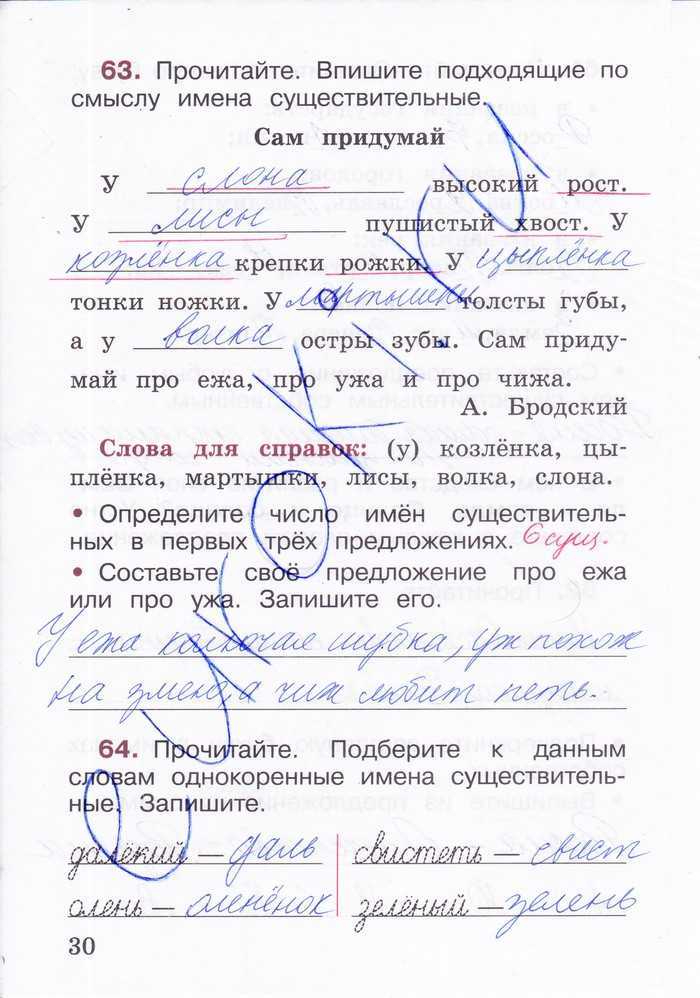 63. Прочитайте. Впишите подходящие по
смыслу имена существительные.
Сам придумай
У слона высокий рост.
У лисы пушистый хвост. У
козлёнка крепки рожки. У цыплёнка
тонки ножки. У мартышки толсты губы,
а у волка остры зубы. Сам приду-
май про ежа, про ужа и про чижа.
А. Бродский
Слова для справок: (у) козлёнка, цы-
плёнка, мартышки, лисы, волка, слона.
• Определите число имён существитель-
ных в первых трёх предложениях. 6 сущ.
• Составьте своё предложение про ежа
или про ужа. Запишите его.
У ежа колючая шубка, уж похож
на змею, а чиж любит петь.
64. Прочитайте. Подберите к данным
словам однокоренные имена существитель-
ные. Запишите.
далёкий — даль свистеть — свист
олень — оленёнок зелёный — зелень
30